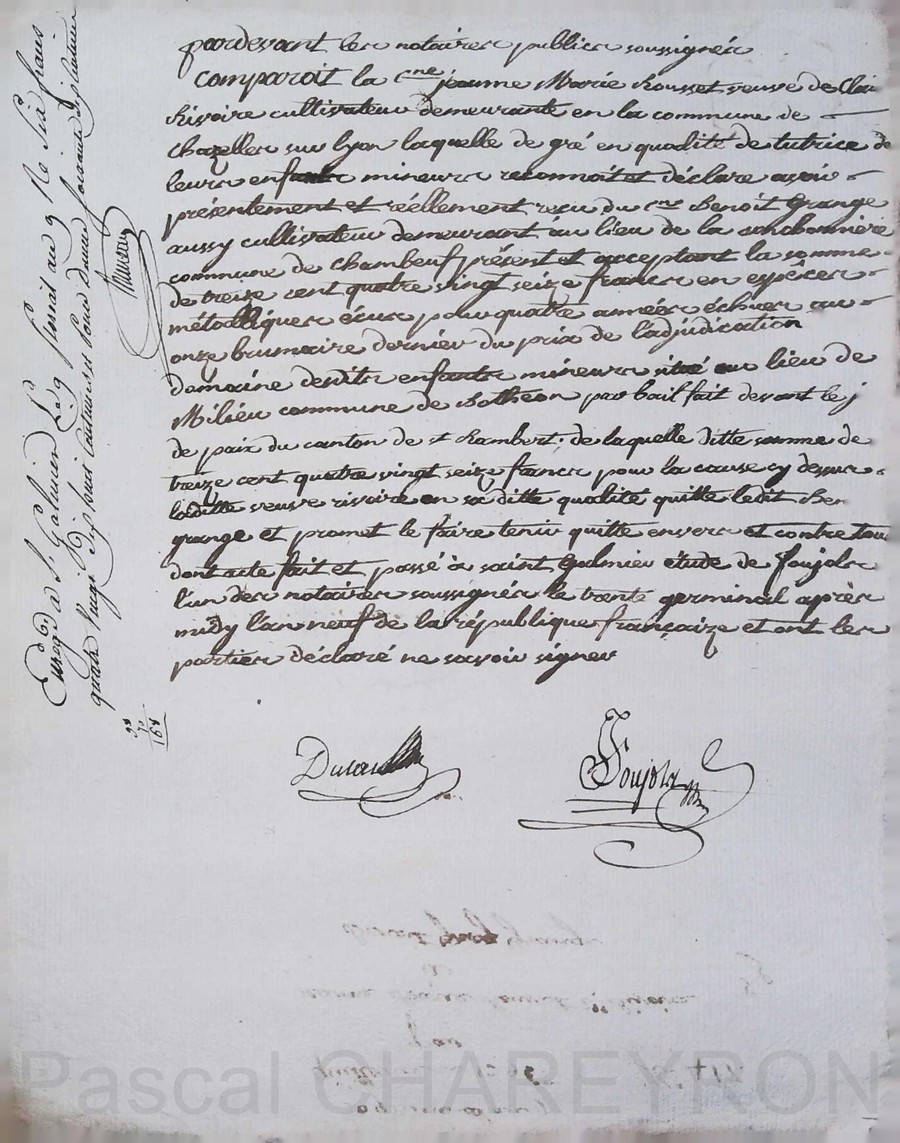 pardevant les notaires publics soussignés
comparoit la Cne jeanne Marie Rousset veuve de Clau
Rivoire cultivateur demeurante en la commune de
Chazelles sur lyon laquelle de gré en qualité de tutrice de
leurs enfants mineurs reconnoit et déclare avoir
présentement et réellement reçu du Cne Benoit Grange
aussy cultivateur demeurant au lieu de la
commune de Chambeuf présent et acceptant la somme
de treize cent quatre vingt seize francs en espèces
métalliques écus pour quatre années échues au
onze brumaire dernier du prix de l'adjudication
domaine desdits enfants mineurs situé au lieu de
Milieu commune de Botheon par bail fait devant le j
de paix du canton de st Rambert. de laquelle ditte somme de
treize cent quatre vingt seize francs pour la cause cy dessus
laditte veuve rivoire en sa ditte qualité quitte ledit Ben
grange et promet le faire tenir quitte envers et contre tous
dont acte fait et passé à saint Galmier étude de Foujols
l'un des notaires soussignés le trente germinal après
midy l'an neuf de la république françaize et ont les
parties déclaré ne savoir signer
Foujols
Enregé à St Galmier Le 9 floréal an 9 Rs six francs
quatre vingt dix sept centimes et pour douze
98
70
168
Pascal CHAREYRON